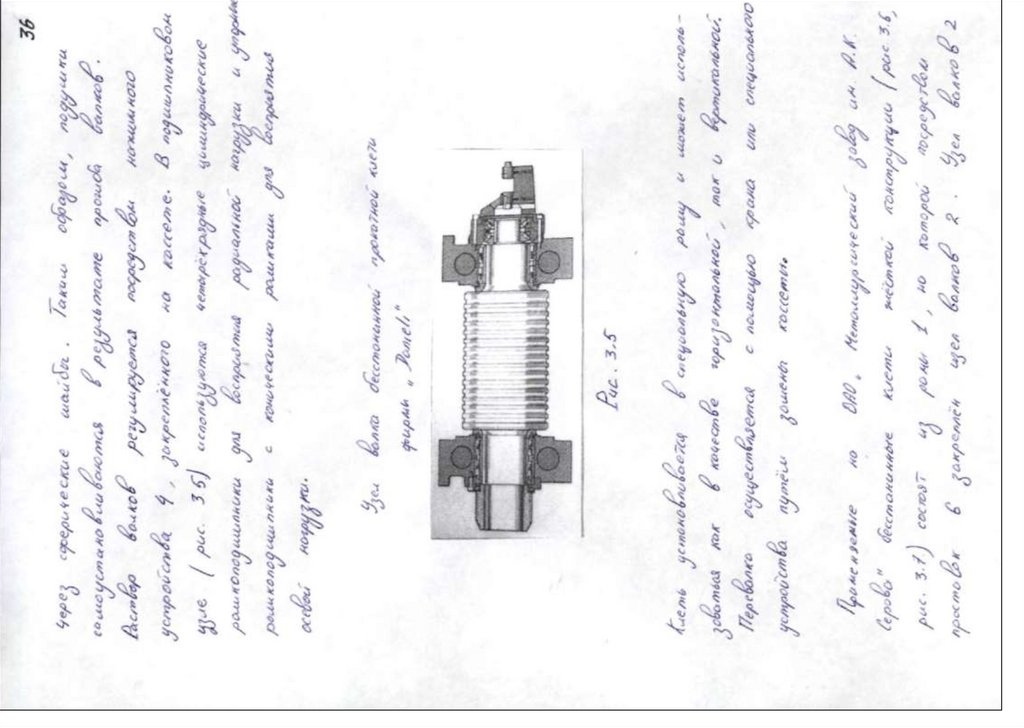 36
через сферические шайбы. Таким образом, подушки
самоустанавливаются в результате прогиба валков.
Раствор валков регулируется посредством нажимного
устройства 4, закреплённого на кассете. В подшипниковом
узле (рис. 3.5) используются четырёхрядные цилиндрические
роликоподшипники для восприятия радиальной нагрузки и упорные
роликоподшипники с коническими роликами для восприятия
осевой нагрузки.
Узел валка бесстанинной прокатной клети
фирмы „Danieli"
Рис. 3.5
Клеть устанавливается в специальную раму и может исполь-
зоваться как в качестве горизонтальной, так и вертикальной.
Перевалка осуществляется с помощью крана или специального
устройства путём замены кассеты.
Применяемые на ОАО „Металлургический завод им. А.К.
Серова" бесстанинные клети жёсткой конструкции (рис 3.6,
рис. 3.7) состоят из рамы 1, на которой посредством
проставок 6 закреплён узел валков 2. Узел валков 2